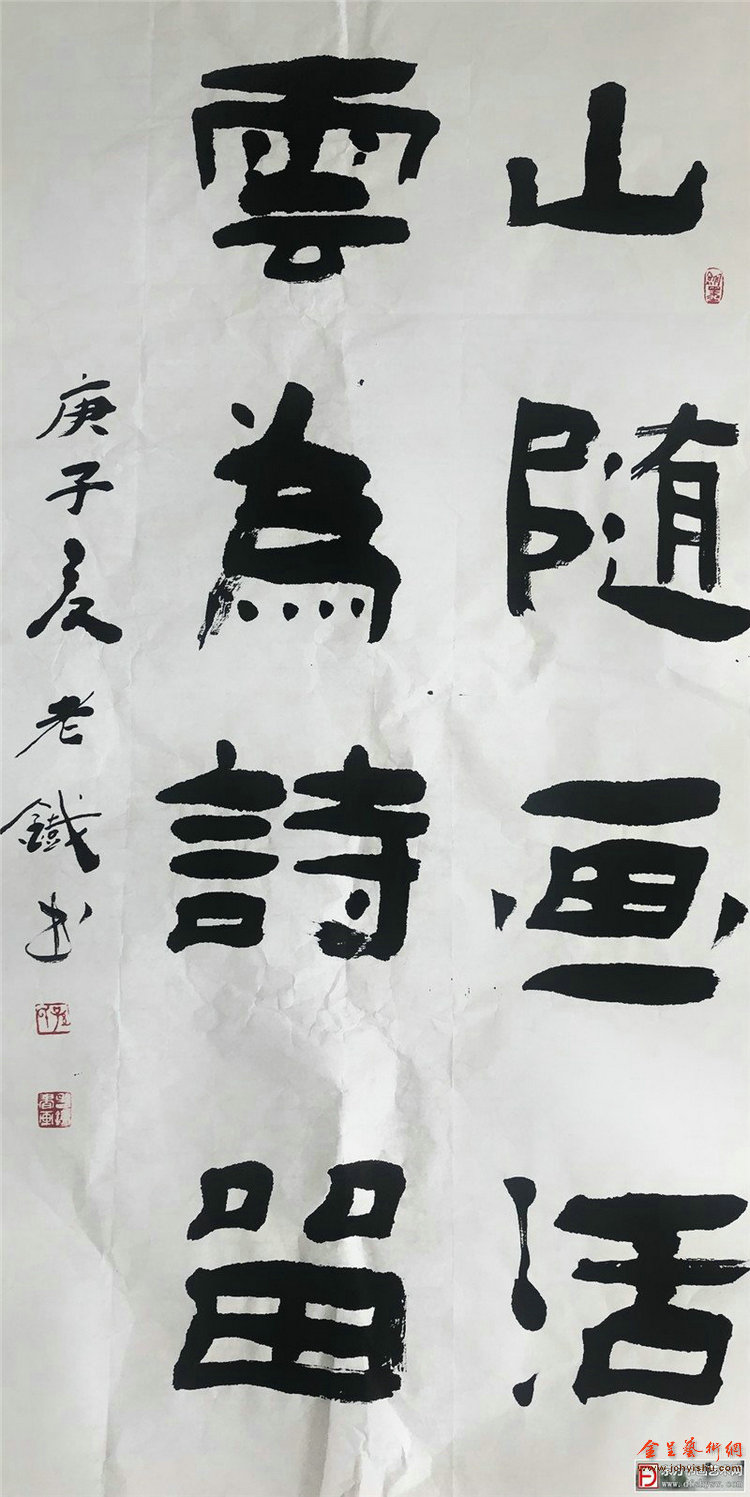 山随画活
雲為詩留
庚子夏老鐵书
金呈藝術網
www.jchyishu.com